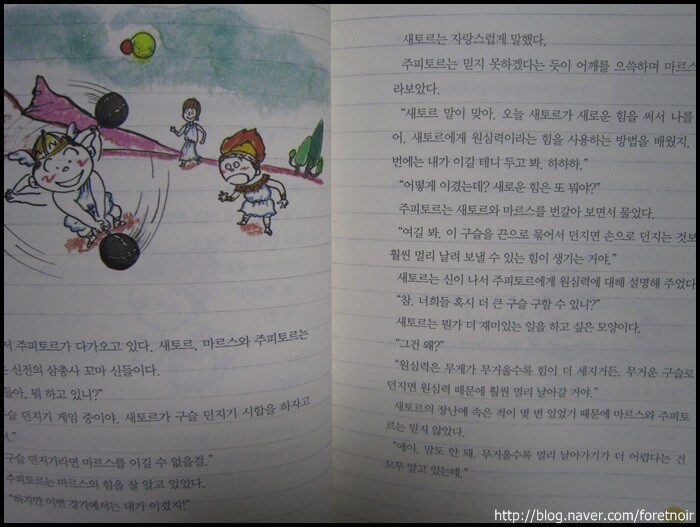 서 주피토르가 다가오고 있다. 새토르, 마르스와 주피토르는
는 신전의 삼총사 꼬마 신들이다.
들아, 뭐 하고 있니?"
슬 던지기 게임 중이야. 새토르가 구슬 던지기 시합을 하자고
구슬 던지기라면 마르스를 이길 수 없을걸."
주피토르는 마르스의 힘을 잘 알고 있었다.
"하지만 이번 경기에서는 내가 이겼지!"
새토르는 자랑스럽게 말했다.
주피토르는 믿지 못하겠다는 듯이 어깨를 으쓱하며 마르스
라보았다.
"새토르 말이 맞아. 오늘 새토르가 새로운 힘을 써서 나를
어. 새토르에게 원심력이라는 힘을 사용하는 방법을 배웠지.
번에는 내가 이길 테니 두고 봐. 하하하."
"어떻게 이겼는데? 새로운 힘은 또 뭐야?"
주피토르는 새토르와 마르스를 번갈아 보면서 물었다.
"여길 봐. 이 구슬을 끈으로 묶어서 던지면 손으로 던지는 것보
훨씬 멀리 날려 보낼 수 있는 힘이 생기는 거야."
새토르는 신이 나서 주피토르에게 원심력에 대해 설명해 주었다
"참, 너희들 혹시 더 큰 구슬 구할 수 있니?"
새토르는 뭔가 더 재미있는 일을 하고 싶은 모양이다.
"그건 왜?"
"원심력은 무게가 무거울수록 힘이 더 세지거든. 무거운 구슬로
던지면 원심력 때문에 훨씬 멀리 날아갈 거야."
새토르의 장난에 속은 적이 몇 번 있었기 때문에 마르스와 주피토
르는 믿지 않았다.
"에이, 말도 안 돼. 무거울수록 멀리 날아가기가 더 어렵다는 건
모두 알고 있는데."
http://blog.naver.com/foretnoir